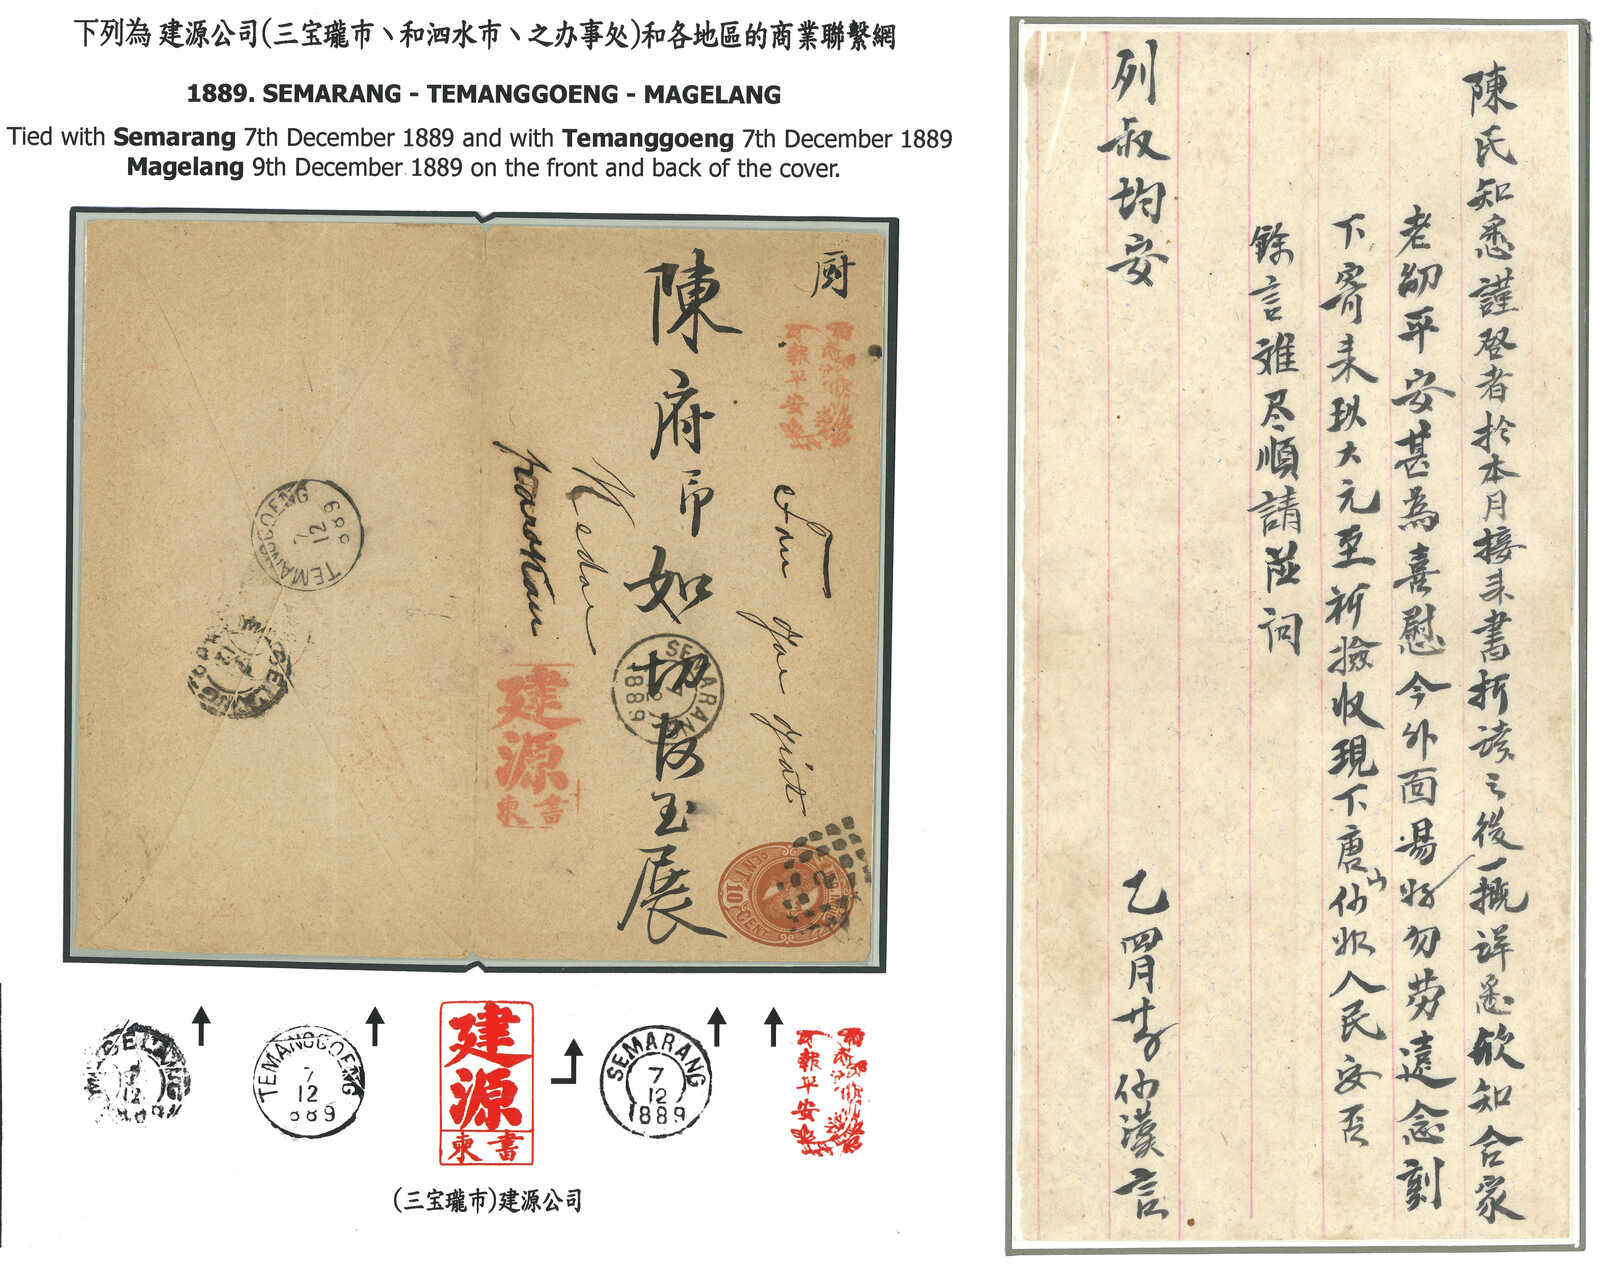 下列為 建源公司(三宝瓏市、和泗水市、之办事处)和各地區的商業聯繫網
1889. SEMARANG - TEMANGGOENG - MAGELANG
Tied with Semarang 7th December 1889 and with Temanggoeng 7th December 1889
Magelang 9th December 1889 on the front and back of the cover.
厨
報平安
陳府
如切
玉展
Kedoe
建源
書柬
SEMARANG
1889
TEMANGGOENG
7
12
889
MAGELANG
10 CENT
MAGELANG
12
TEMANGGOENG
7
12
889
建源
書柬
SEMARANG
7
12
1889
報平安
(三宝瓏市)建源公司
陳氏知悉謹啓者於本月接来書折読之後一概詳悉欣知合家
老幼平安甚為喜慰今外面易好勿劳遠念刻
下寄来玖大元至祈撿收現下唐山仂水人民安否
餘言难尽順請並问
列叔均安
乙四月廿 仂漢言